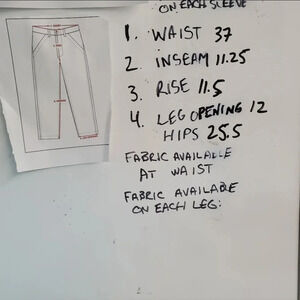 ON EACH SLEEVE
1. WAIST 37
2. INSEAM 11.25
3. RISE 11.5
4. LEG OPENING 12
HIPS 25.5
FABRIC AVAILABLE
AT WAIST
FABRIC AVAILABLE
ON EACH LEG: